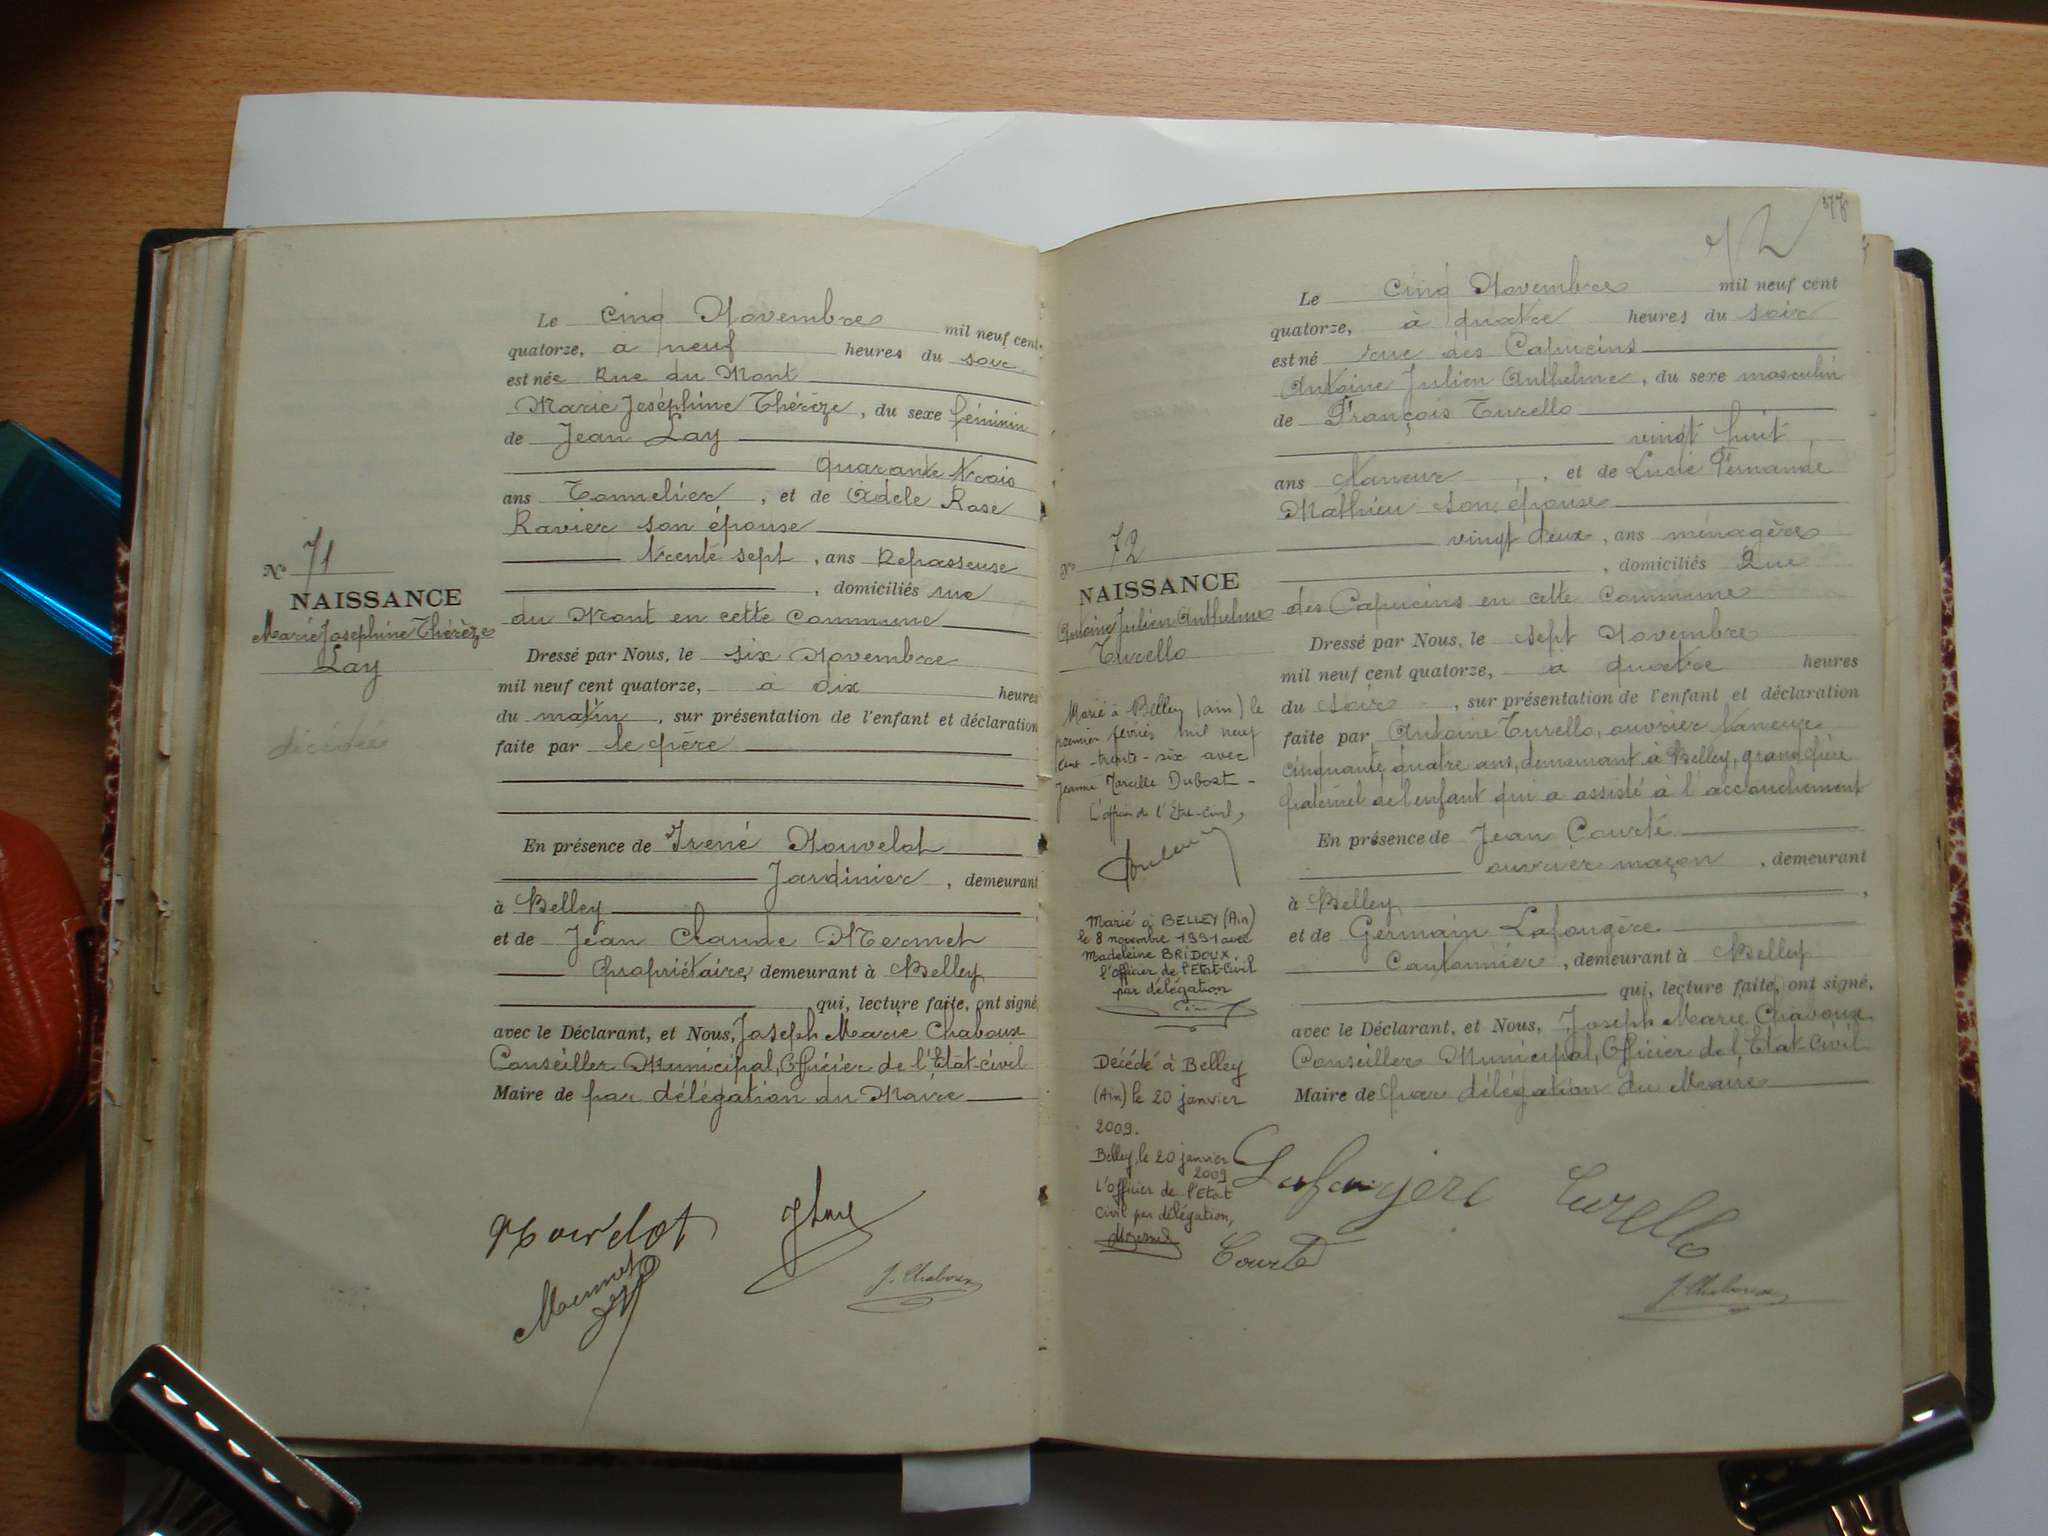 Le cinq Novembre mil neuf cent
quatorze, à neuf heures du soir
est née Rue du Mont
Marie Joséphine Thérèze, du sexe féminin
de Jean Lay
quarante trois
ans Tonnelier, et de Adèle Rose
Ravier son épouse
trente sept, ans Repasseuse
, domiciliés rue
du Mont en cette Commune
Dressé par Nous, le six Novembre
mil neuf cent quatorze, à dix heures
du matin, sur présentation de l'enfant et déclaration
faite par le père
En présence de Irené Nouvelot
Jardinier, demeurant
à Belley
et de Jean Claude Mermet
Propriétaire, demeurant à Belley
qui, lecture faite, ont signé
avec le Déclarant, et Nous, Joseph Marie Chaboux
Conseiller Municipal, Officier de l'Etat-civil
Maire de par délégation du Maire
No 71
NAISSANCE
Marie Joséphine Thérèze
Lay
décédée
Nouvelot
Mermet
J. Chaboux
378
72
Le cinq Novembre mil neuf cent
quatorze, à quatre heures du soir
est né rue des Capucins
Antoine Julien Anthelme, du sexe masculin
de François Turello
vingt huit,
ans Vaneur, et de Lucie Fernande
Mathieu son épouse
vingt deux, ans ménagère
, domiciliés Rue
des Capucins en cette Commune
Dressé par Nous, le sept Novembre
mil neuf cent quatorze, à quatre heures
du soir, sur présentation de l'enfant et déclaration
faite par Antoine Turello, ouvrier Vaneur
cinquante quatre ans, demeurant à Belley, grand père
paternel de l'enfant qui a assisté à l'accouchement
En présence de Jean Courté
ouvrier maçon, demeurant
à Belley,
et de Germain Lafougère
Cantonnier, demeurant à Belley
qui, lecture faite, ont signé,
avec le Déclarant, et Nous, Joseph Marie Chavoux
Conseiller Municipal, Officier de l'Etat-Civil
Maire de par délégation du Maire
No 72
NAISSANCE
Antoine Julien Anthelme
Turello
Marié à Belley (Ain) le
premier février mil neuf
cent-trente-six avec
Jeanne Marcelle Dubost -
L'officier de l'Etat-civil,
Marié à BELLEY (Ain)
le 8 novembre 1991 avec
Madeleine BRIDOUX
l'Officier de l'Etat-Civil
par délégation
Décédé à Belley
(Ain) le 20 janvier
2009.
Belley, le 20 janvier
2009
L'Officier de l'Etat
Civil par délégation,
Lafougere
Turello
Courté
J. Chaboux